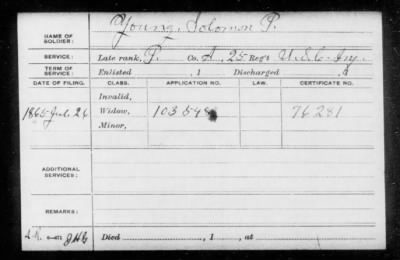 NAME OF SOLDIER: Young, Solomon P.
SERVICE: Late rank, P. Co. A, 25 Reg't U.S.C. Inf.
TERM OF SERVICE: Enlisted , 1 Discharged , 1
DATE OF FILING. CLASS. APPLICATION NO. LAW. CERTIFICATE NO.
Invalid,
1865 Jul. 26 Widow, 103548 76281
Minor,
ADDITIONAL SERVICES:
REMARKS:
Died , 1 , at